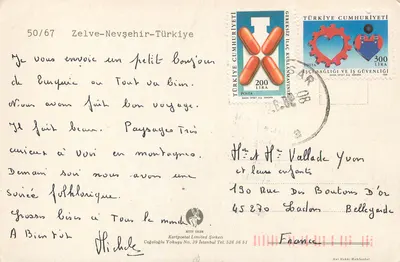 50/67 Zelve-Nevşehir-Türkiye
Je vous envoie un petit bonjour
de Turquie où Tout va bien.
Nous avons fait bon voyage.
Il fait beau. Paysages Très
curieux à voir en montagnes.
Demain soir nous avons une
soirée folklorique.
Grosses bises à Tous le monde
A Bientôt
Michele
TÜRKİYE CUMHURİYETİ
200
LİRA
TÜRKİYE CUMHURİYETİ
300
LİRA
İŞÇİ SAĞLIĞI VE İŞ GÜVENLİĞİ
Mr et Mme Vallade Yvon
et leurs enfants
190 Rue Des Boutons D'Or
45270 Ladon Bellegarde
France
Kartpostal Limited Şirketi